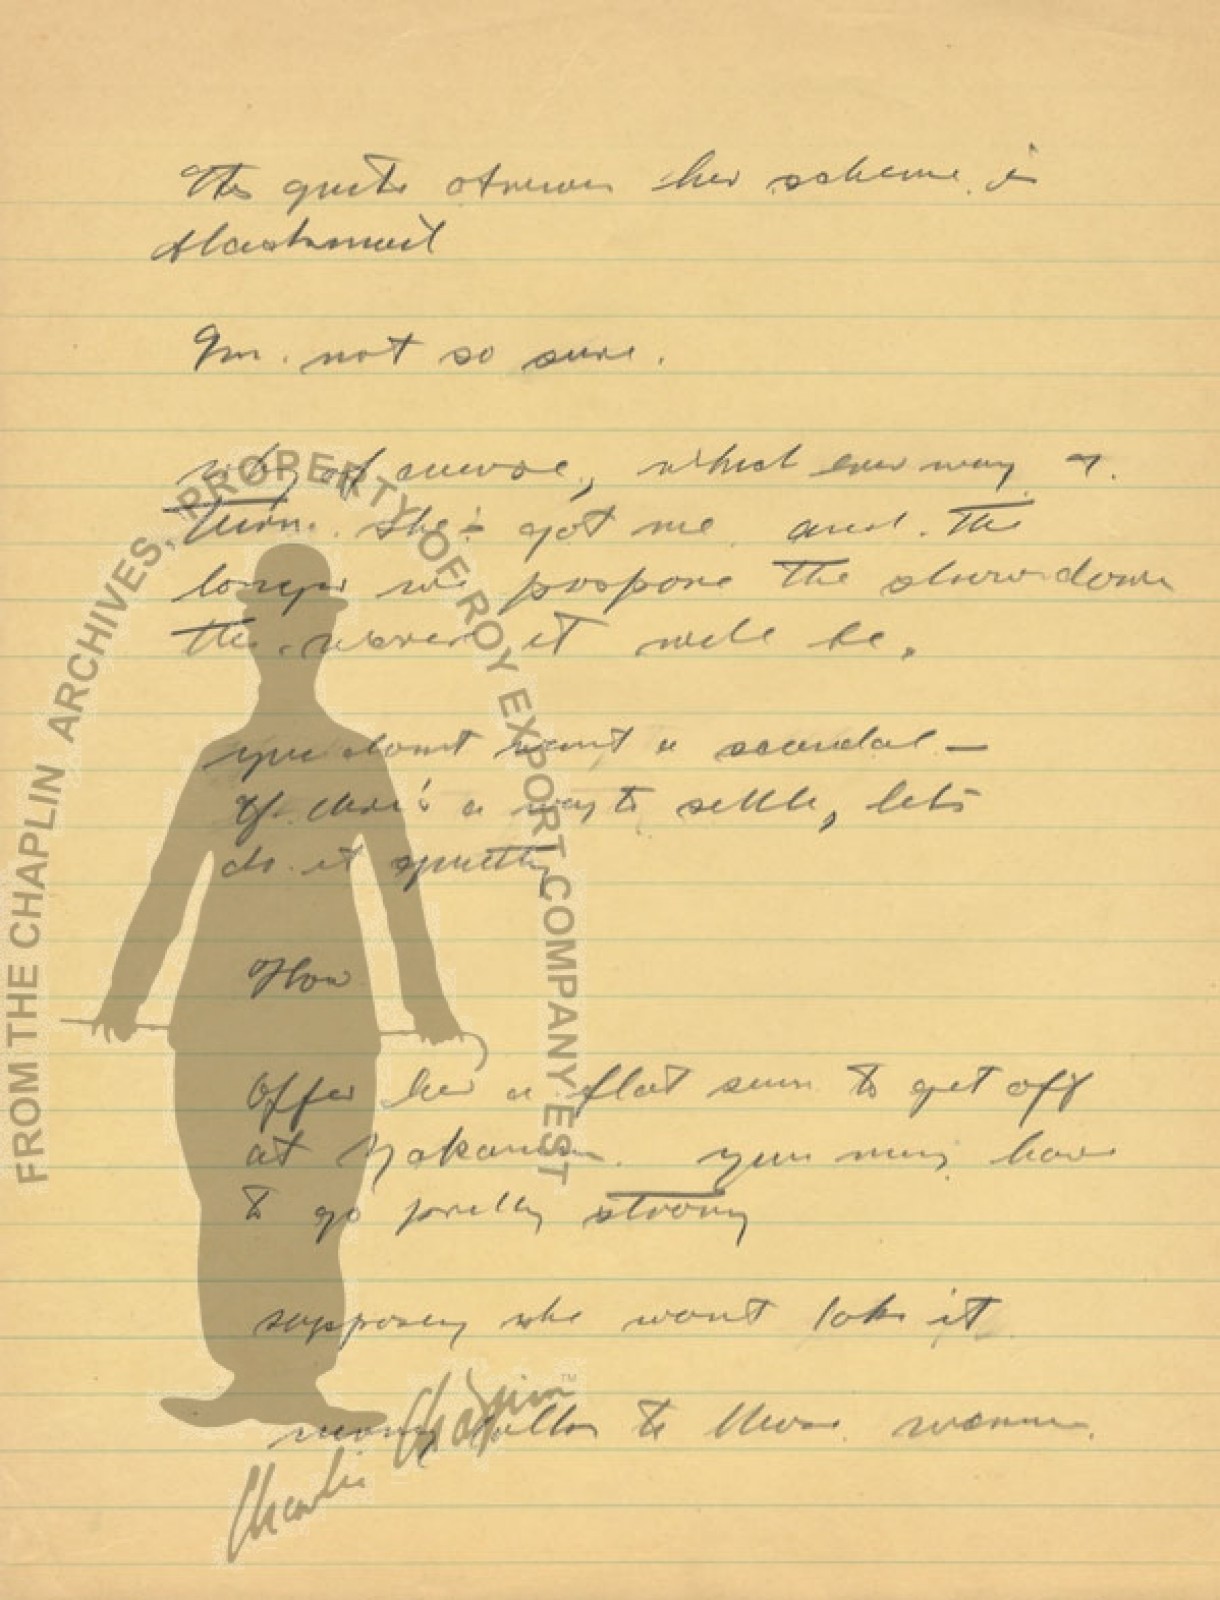 Its quite obvious her scheme is
blackmail
I'm. not so sure.
why of course, which ever way I
turn. she's got me and. the
longer we pospone the showdown
the. worse it will be.
you dont want a scandal —
If there's a way to settle, lets
do it quietly
How
Offer her a flat sum to get off
at Yokahama. you may have
to go pretty strong
supposing she wont take it
money talks to these women.
FROM THE CHAPLIN ARCHIVES, PROPERTY OF ROY EXPORT COMPANY EST
Charlie Chaplin ™